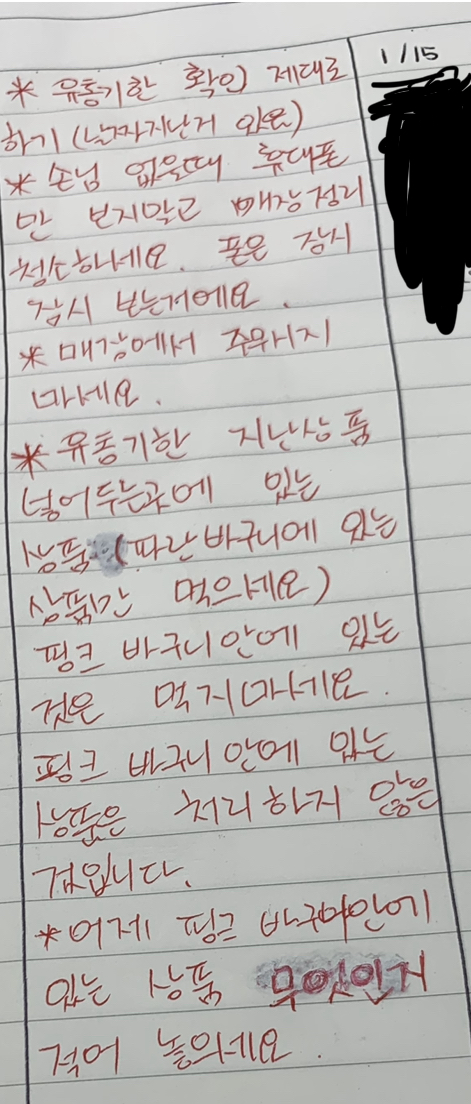 1/15
* 유통기한 확인 제대로
하기 (날짜지난거 있음)
* 손님 없을때 휴대폰
만 보지말고 매장정리
청소하세요. 폰은 잠시
잠시 보는거에요.
* 매장에서 주무시지
마세요.
* 유통기한 지난상품
넣어두는곳에 있는
상품 (파란바구니에 있는
상품만 먹으세요)
핑크 바구니안에 있는
것은 먹지마세요.
핑크 바구니안에 있는
상품은 처리하지 않은
것입니다.
*어제 핑크 바구니안에
있는 상품 무엇인지
적어 놓으세요.